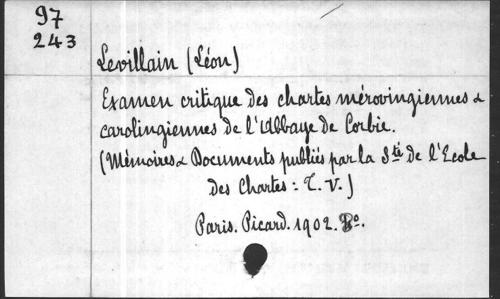 97
243
Levillain (Léon)
Examen critique des chartes mérovingiennes &
carolingiennes de l'Abbaye de Corbie.
(Mémoires & Documents publiés par la Sté de l'Ecole
des Chartes : T. V.)
Paris. Picard. 1902. 8º.